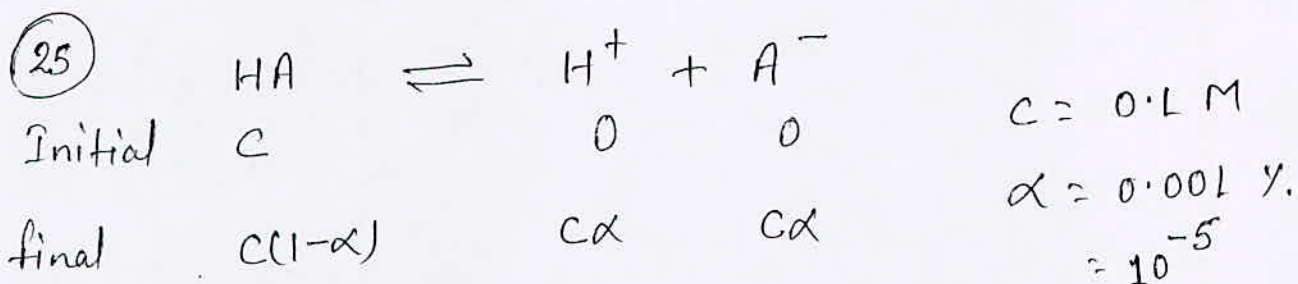 25
HA ⇌ H⁺ + A⁻
Initial C 0 0
final C(1-α) Cα Cα
C = 0.1 M
α = 0.001 %.
= 10⁻⁵